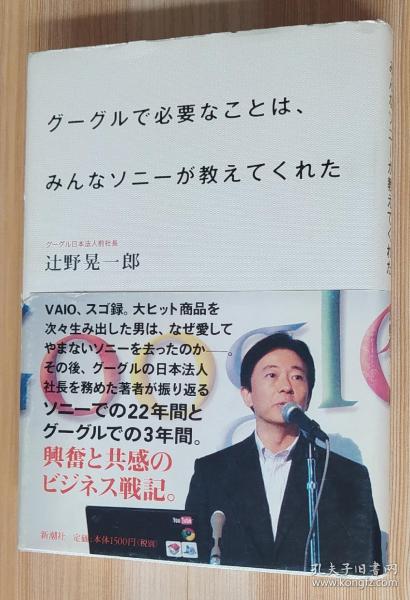 グーグルで必要なことは、
みんなソニーが教えてくれた
グーグル日本法人前社長
辻野晃一郎
VAIO、スゴ録。大ヒット商品を
次々生み出した男は、なぜ愛して
やまないソニーを去ったのか──。
その後、グーグルの日本法人
社長を務めた著者が振り返る
ソニーでの22年間と
グーグルでの3年間。
興奮と共感の
ビジネス戦記。
新潮社 定価:本体1500円(税別)
YouTube
孔夫子旧书网
www.kongfz.com